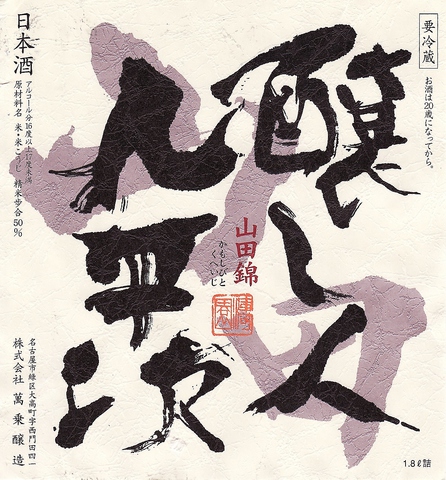 要冷蔵
お酒は20歳になってから。
醸し人
九平次
山田錦
かもしびと
くへいじ
日本酒
アルコール分16度以上17度未満
原材料名 米・米こうじ 精米歩合50%
名古屋市緑区大高町字西門田四一
株式会社 萬乗醸造
1.8ℓ詰